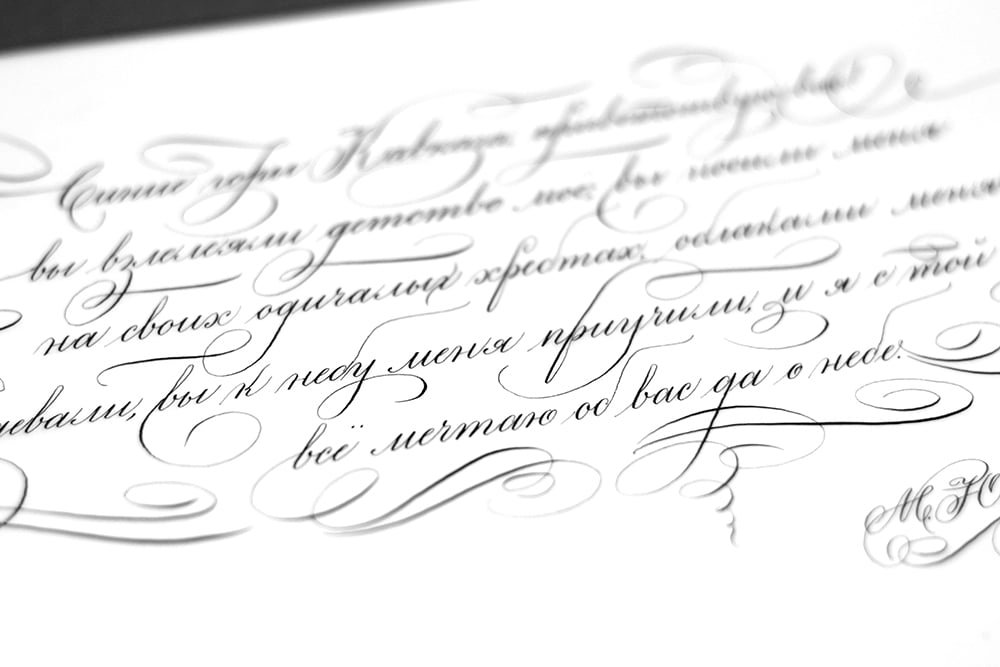 Синие горы Кавказа, приветствую вас!
вы взлелеяли детство мое; вы носили меня
на своих одичалых хребтах, облаками меня
девали, вы к небу меня приучили, и я с той
всё мечтаю об вас да о небе.
М. Ю